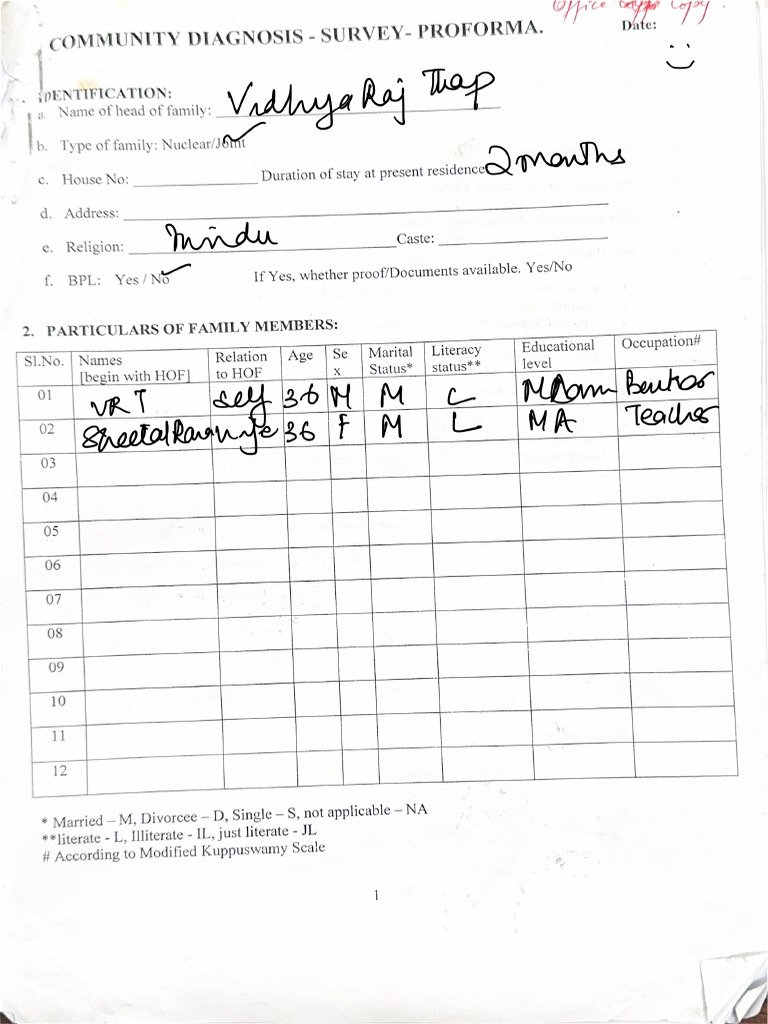 Office Copy.
COMMUNITY DIAGNOSIS - SURVEY- PROFORMA. Date:
IDENTIFICATION:
a. Name of head of family: Vidhya Raj Thap
b. Type of family: Nuclear/Joint
c. House No: Duration of stay at present residence 2 months
d. Address:
e. Religion: Hindu Caste:
f. BPL: Yes / No If Yes, whether proof/Documents available. Yes/No
2. PARTICULARS OF FAMILY MEMBERS:
Sl.No. Names [begin with HOF] Relation to HOF Age Sex Marital Status* Literacy status** Educational level Occupation#
01 VRT self 36 M M L
02 36 F M L MA Teacher
03
04
05
06
07
08
09
10
11
12
* Married – M, Divorcee – D, Single – S, not applicable – NA
**literate - L, Illiterate - IL, just literate - JL
# According to Modified Kuppuswamy Scale
1